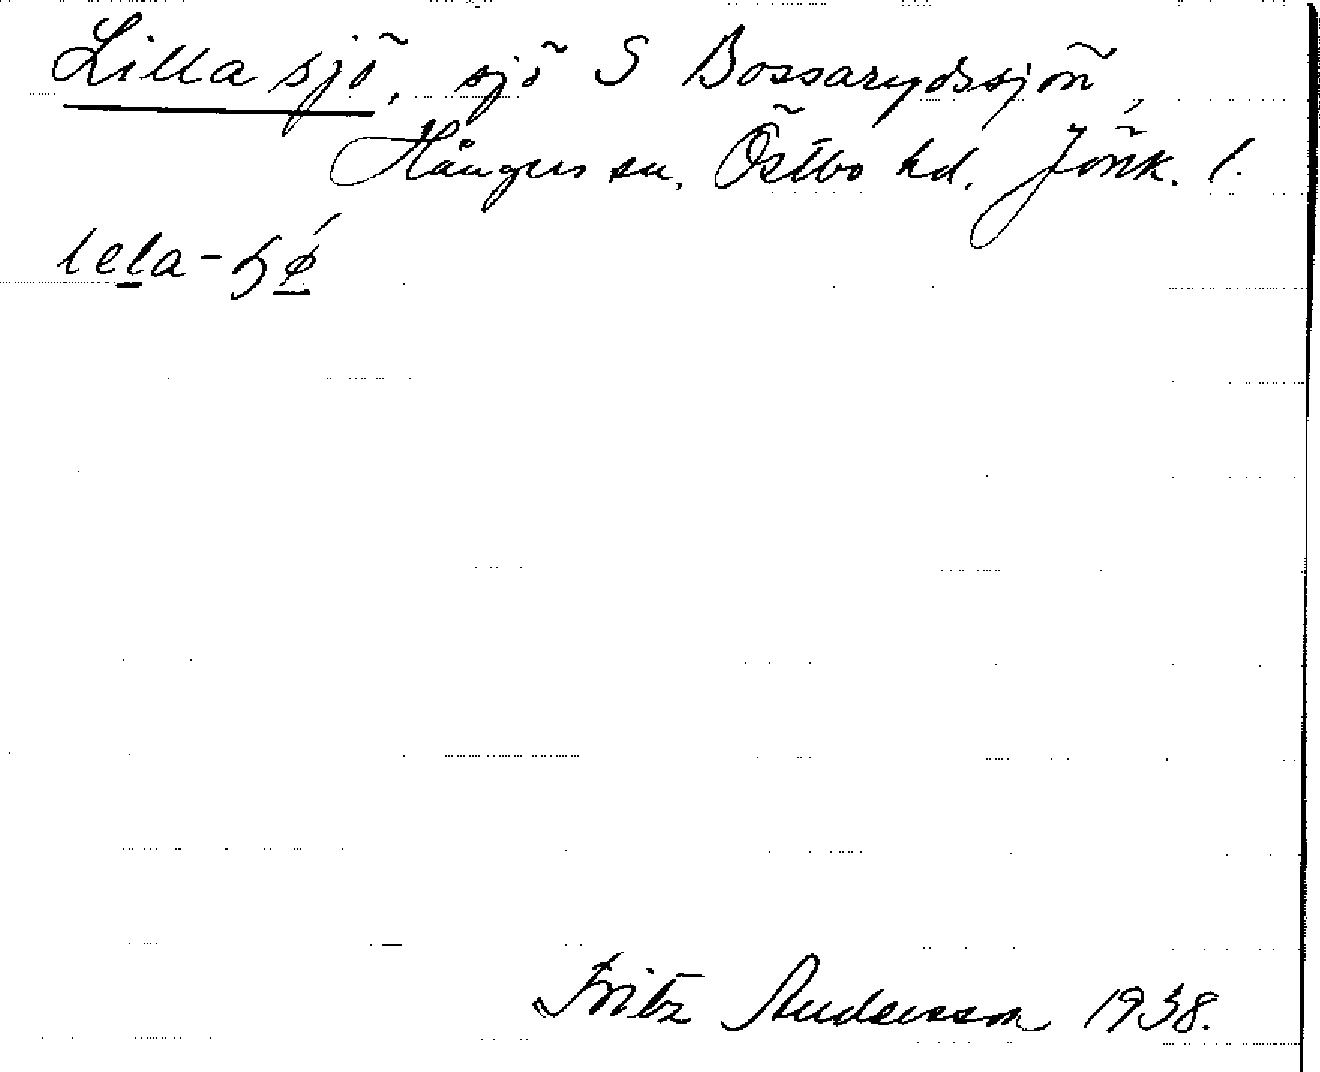 Lilla sjö, sjö S Bossarydssjön,
Hångers sn. Östbo hd. Jönk. l.
lela-ɧǿ
Fritz Andersson 1938.